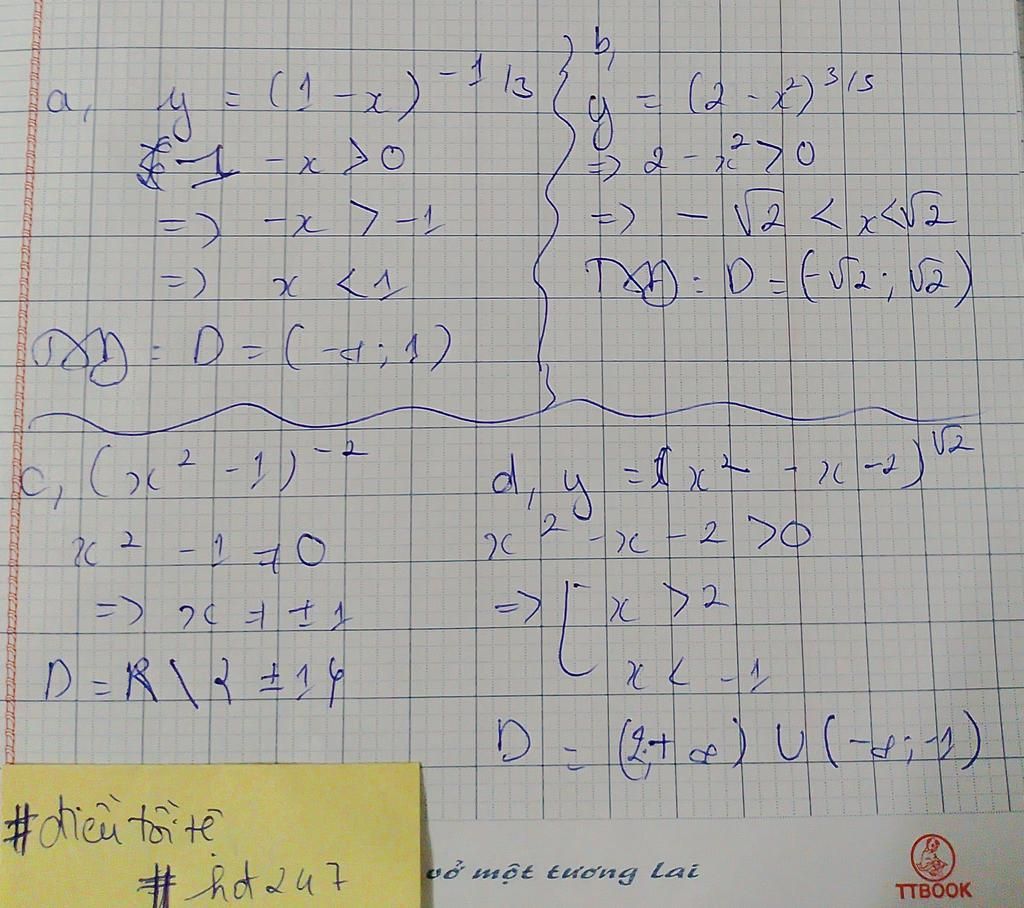 a, y = (1 - x)^{-1/3}
1 - x > 0
=> -x > -1
=> x < 1
TXĐ : D = (-∞ ; 1)
b,
y = (2 - x²)^{3/5}
=> 2 - x² > 0
=> - √2 < x < √2
TXĐ : D = (-√2 ; √2)
c, (x² - 1)^{-2}
x² - 1 ≠ 0
=> x ≠ ±1
D = R \ { ±1 }
d, y = (x² - x - 2)^{√2}
x² - x - 2 > 0
=> [ x > 2
x < -1
D = (2; + ∞) ∪ (-∞ ; -1)
#điều tồi tệ
# hd247
vở một tương lai
TTBOOK